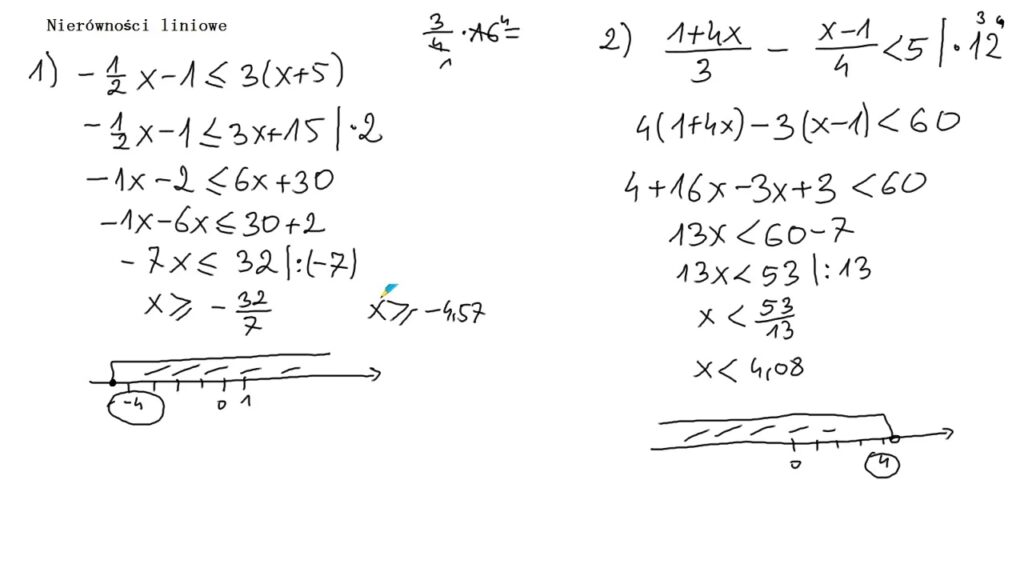 Nierówności liniowe
3/4 · 16 4 =
1
1) -1/2 x - 1 ≤ 3(x+5)
-1/2 x - 1 ≤ 3x+15 | · 2
-1x - 2 ≤ 6x + 30
-1x - 6x ≤ 30 + 2
-7x ≤ 32 | : (-7)
x ≥ -32/7
x ≥ -4,57
-4 0 1
2) (1+4x)/3 - (x-1)/4 < 5 | · 12
3 4
4(1+4x) - 3(x-1) < 60
4 + 16x - 3x + 3 < 60
13x < 60 - 7
13x < 53 | : 13
x < 53/13
x < 4,08
0 4